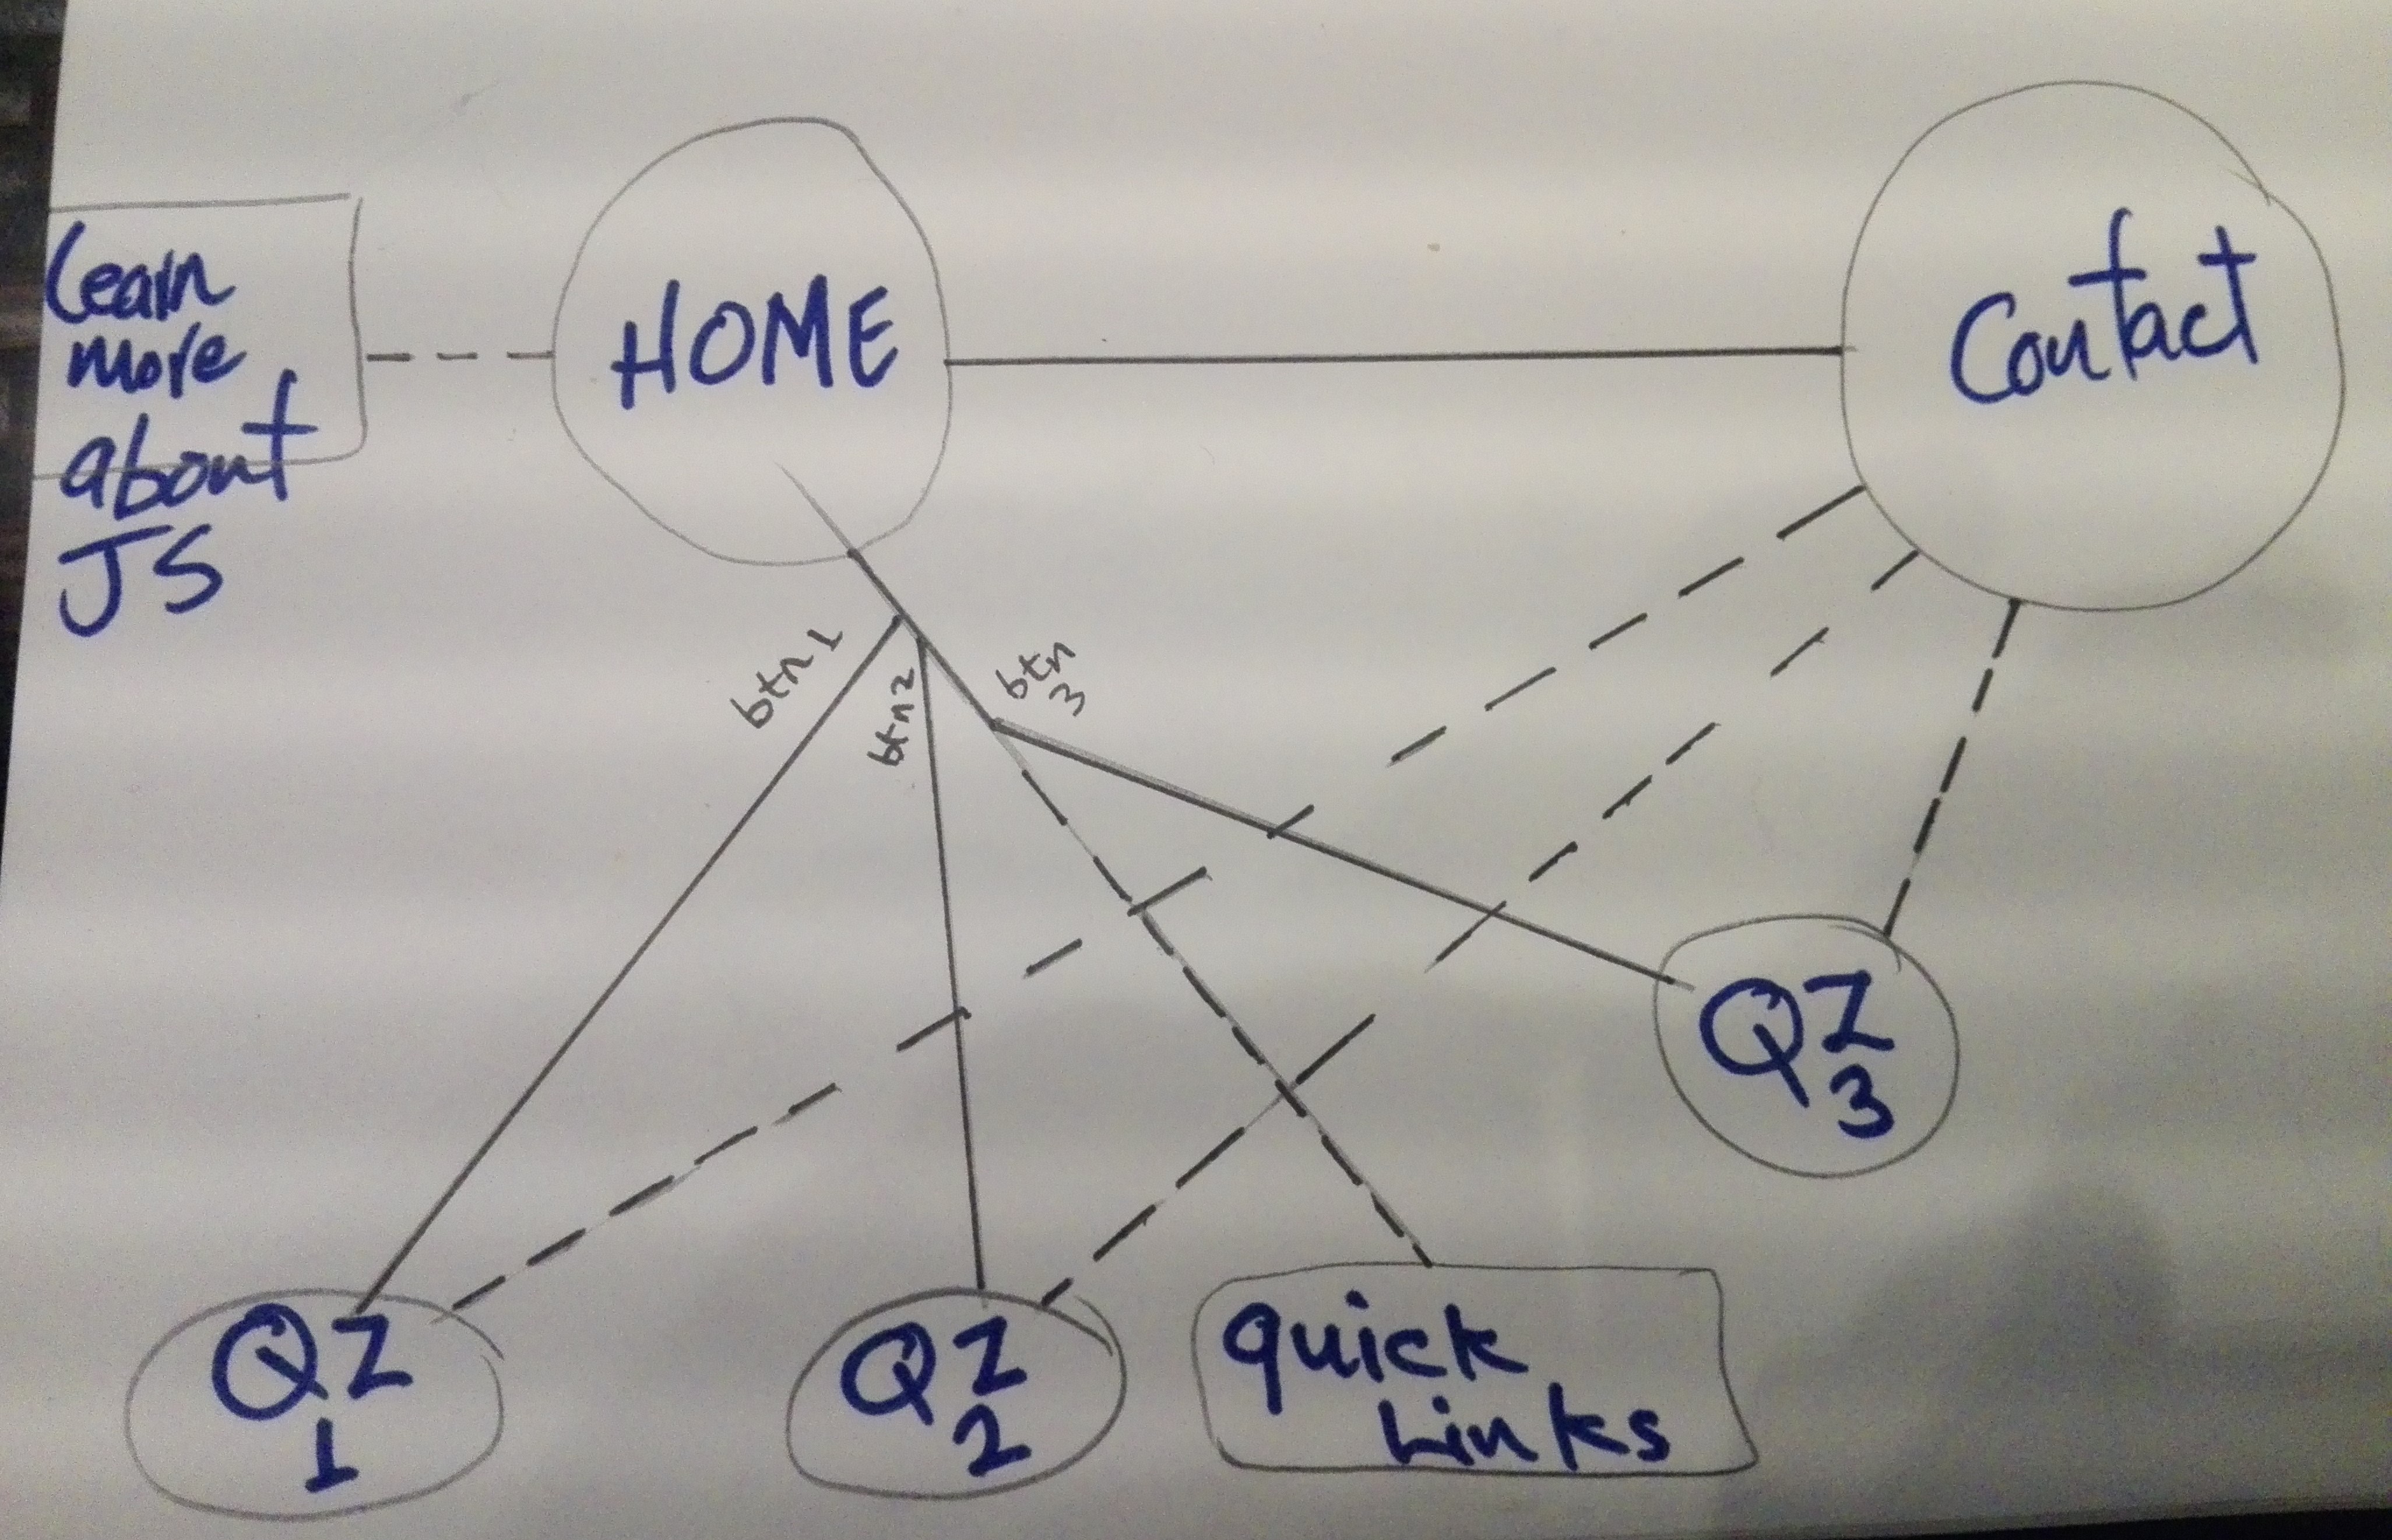 Learn
more
about
JS
HOME
Contact
btn 1
btn 2
btn
3
QZ
3
QZ
1
QZ
2
quick
Links